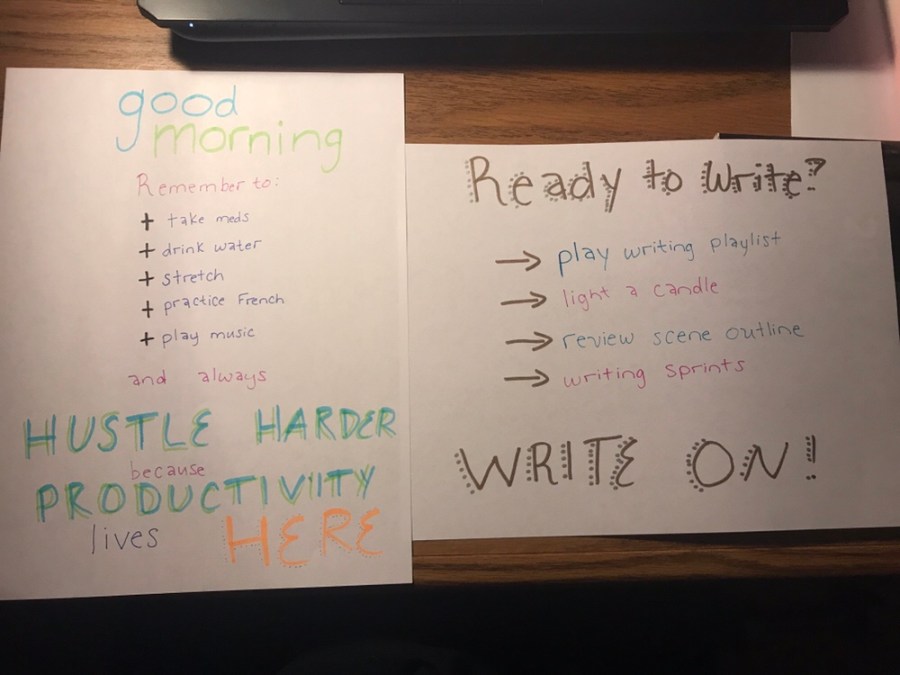 good
morning
Remember to:
+ take meds
+ drink water
+ stretch
+ practice French
+ play music
and always
HUSTLE HARDER
because
PRODUCTIVITY
lives HERE
Ready to Write?
→ play writing playlist
→ light a candle
→ review scene outline
→ writing sprints
WRITE ON!